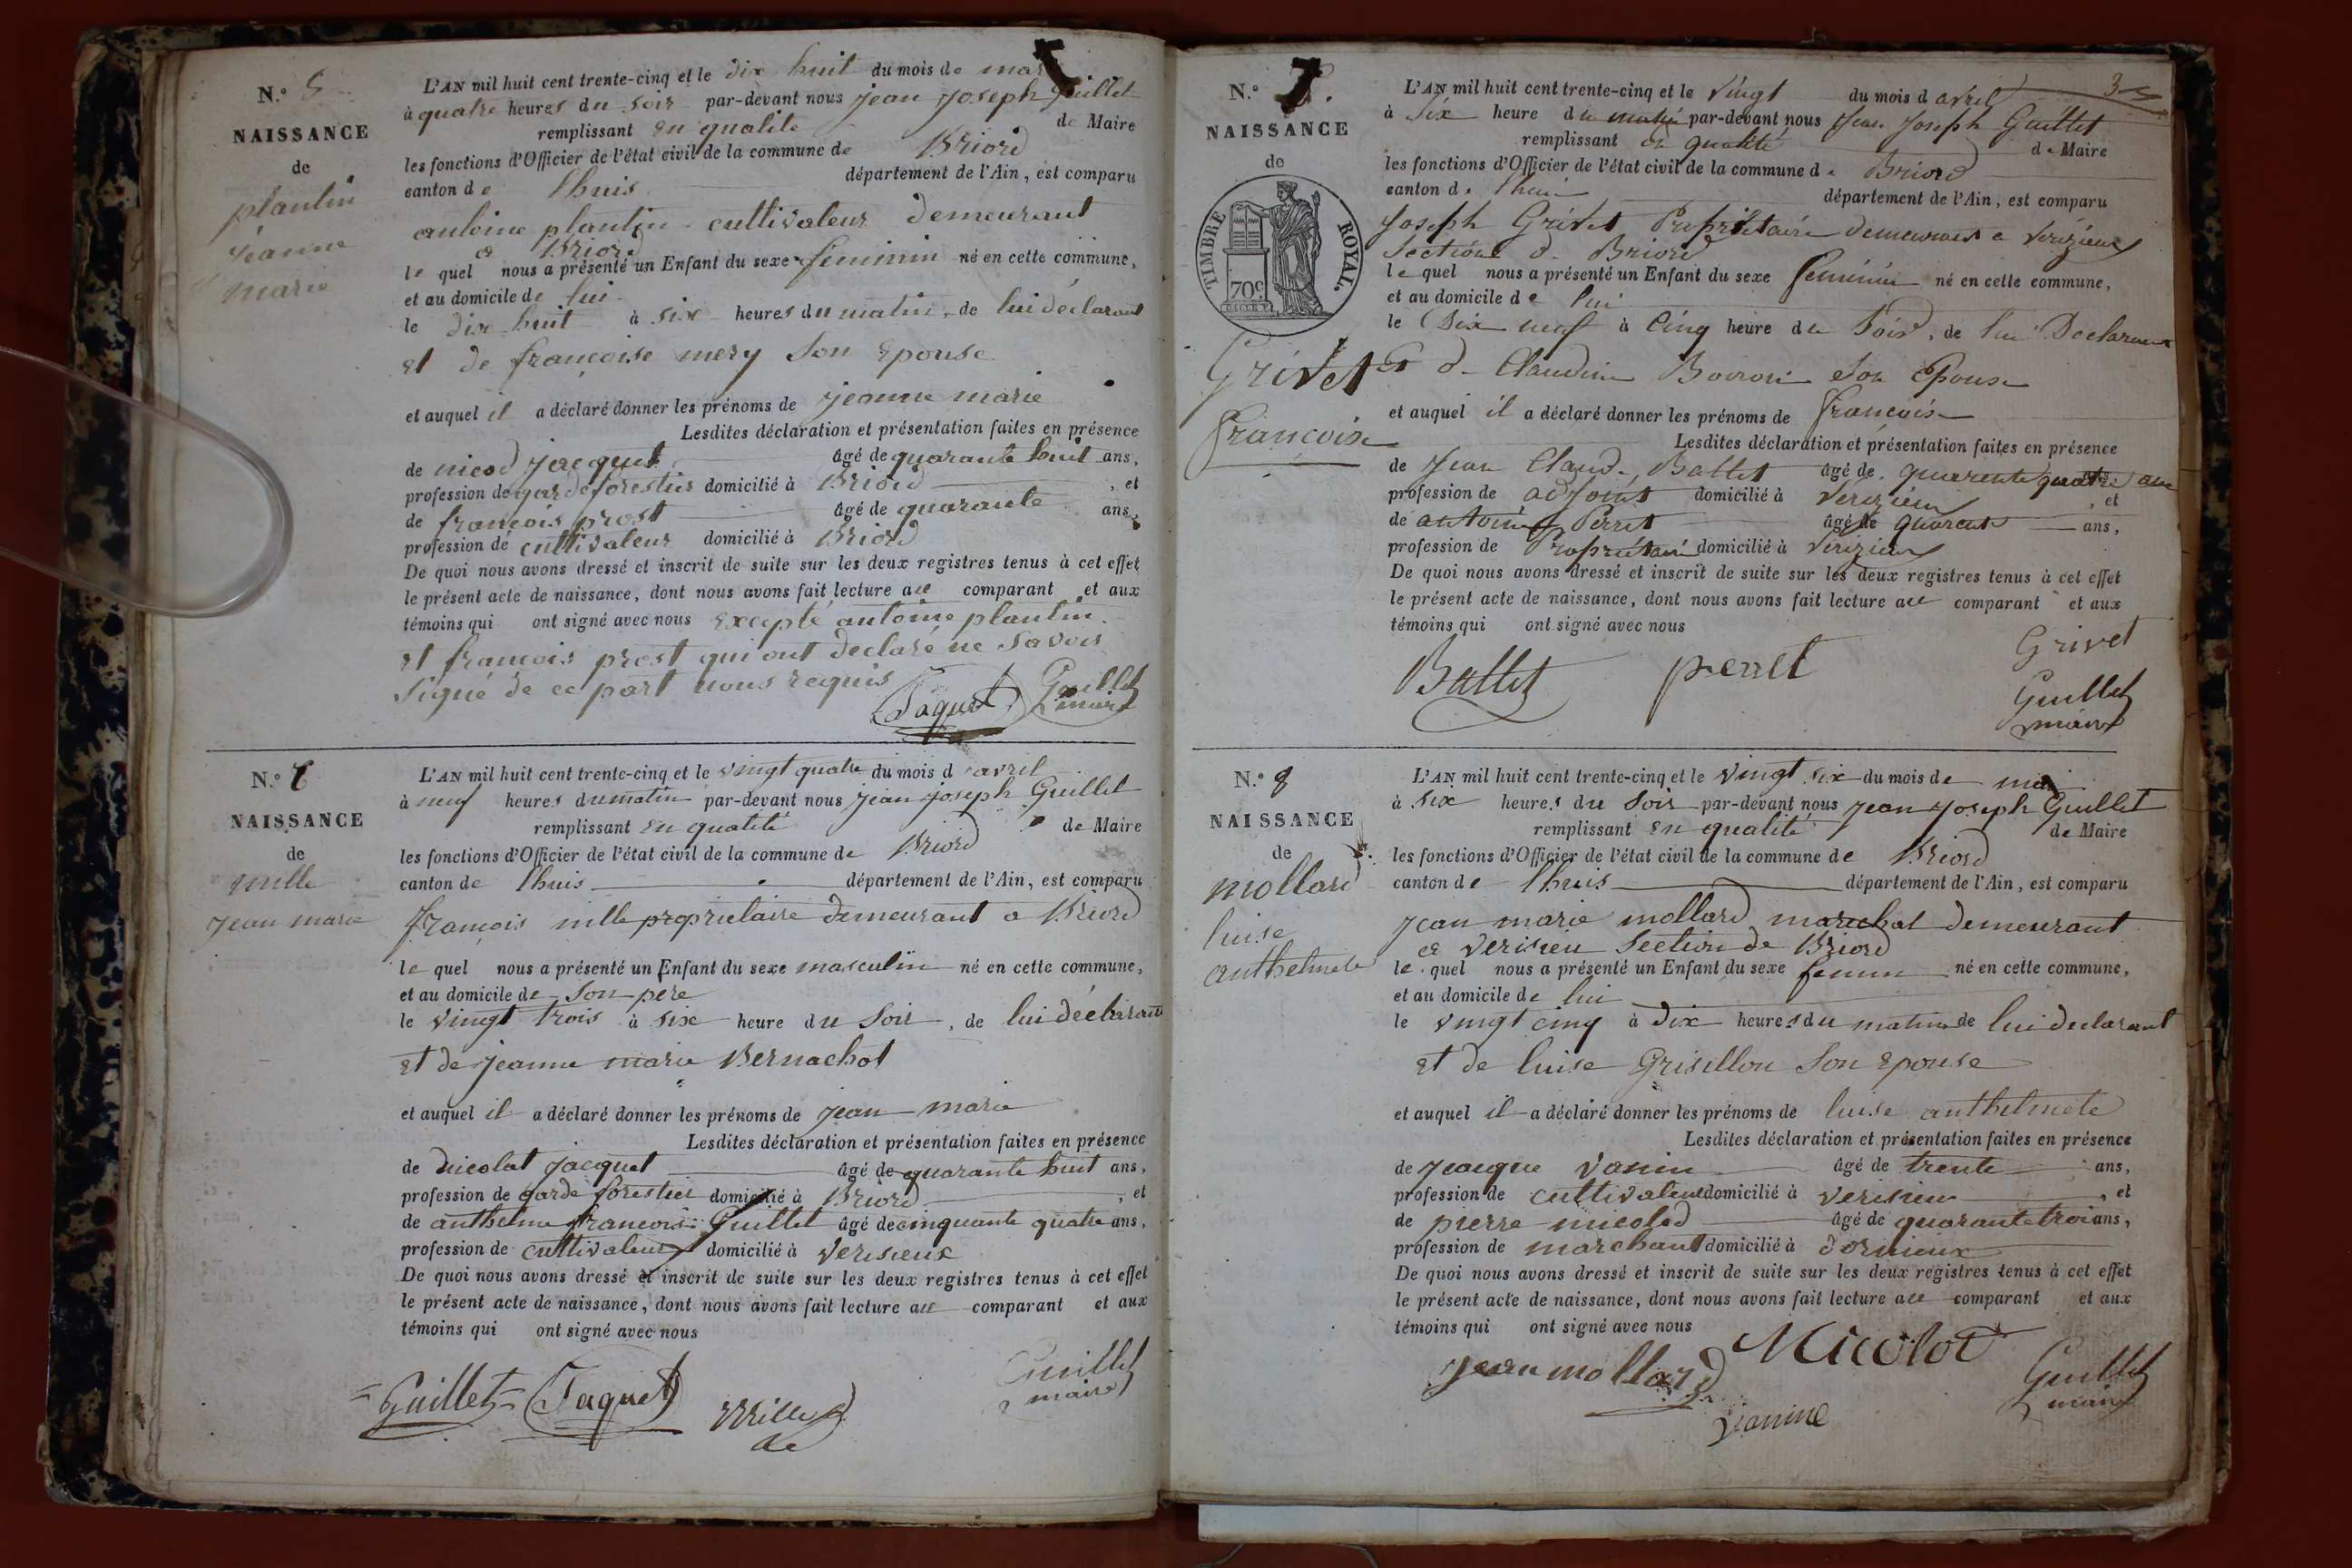 N.° 5
NAISSANCE
de
plantin
jeanne
marie
L'AN mil huit cent trente-cinq et le dix huit du mois de mars
à quatre heures du soir par-devant nous jean joseph Guillet
remplissant en qualité de Maire
les fonctions d'Officier de l'état civil de la commune de Briord
canton de lhuis département de l'Ain, est comparu
antoine plantin cultivateur demeurant
a Briord
le quel nous a présenté un Enfant du sexe feminin né en cette commune,
et au domicile de lui
le dix huit à six heures du matin, de lui déclarant
et de françoise mery son epouse
et auquel il a déclaré donner les prénoms de jeanne marie
Lesdites déclaration et présentation faites en présence
de nicod jacquet âgé de quarante huit ans,
profession de garde forestier domicilié à Briord, et
de françois prost âgé de quarante ans,
profession de cultivateur domicilié à Briord
De quoi nous avons dressé et inscrit de suite sur les deux registres tenus à cet effet
le présent acte de naissance, dont nous avons fait lecture au comparant et aux
témoins qui ont signé avec nous excepté antoine plantin
et francois prost qui ont declaré ne savoir
signé de ce part nous requis
Jaquet Guillet
maire
N.° 6
NAISSANCE
de
mille
jean marie
L'AN mil huit cent trente-cinq et le vingt quatre du mois d avril
à neuf heures du matin par-devant nous jean joseph Guillet
remplissant en qualité de Maire
les fonctions d'Officier de l'état civil de la commune de Briord
canton de lhuis département de l'Ain, est comparu
françois mille proprietaire demeurant a Briord
le quel nous a présenté un Enfant du sexe masculin né en cette commune,
et au domicile de son pere
le vingt trois à six heure du soir, de lui déclarant
et de jeanne marie Bernachot
et auquel il a déclaré donner les prénoms de jean marie
Lesdites déclaration et présentation faites en présence
de jacquet âgé de quarante huit ans,
profession de garde forestier domicilié à Briord, et
de anthelme francois Guillet âgé de cinquante quatre ans,
profession de cultivateur domicilié à verisieux
De quoi nous avons dressé et inscrit de suite sur les deux registres tenus à cet effet
le présent acte de naissance, dont nous avons fait lecture au comparant et aux
témoins qui ont signé avec nous
Guillet Jaquet Mille Guillet
maire
3
N.° 7.
NAISSANCE
de
TIMBRE ROYAL.
70c
Grivet
francoise
L'AN mil huit cent trente-cinq et le vingt du mois d avril
à six heure du matin par-devant nous Jean Joseph Guillet
remplissant en qualité de Maire
les fonctions d'Officier de l'état civil de la commune de Briord
canton de lhuis département de l'Ain, est comparu
Joseph Grivet Proprietaire demeurant a Verizieux
Section de Briord
le quel nous a présenté un Enfant du sexe feminin né en cette commune,
et au domicile de lui
le Dix neuf à Cinq heure du Soir, de lui Declarant
Et de Claudine son Epouse
et auquel il a déclaré donner les prénoms de francoise
Lesdites déclaration et présentation faites en présence
de Jean Claude Ballet âgé de quarente quatre ans
profession de adjoint domicilié à Verizieux, et
de antoine Perret âgé de quarente ans,
profession de Propriétaire domicilié à Verizieux
De quoi nous avons dressé et inscrit de suite sur les deux registres tenus à cet effet
le présent acte de naissance, dont nous avons fait lecture au comparant et aux
témoins qui ont signé avec nous
Grivet
Ballet perret
Guillet
maire
N.° 8
NAISSANCE
de
mollard
luise
anthelmete
L'AN mil huit cent trente-cinq et le vingt six du mois de mai
à six heures du soir par-devant nous jean joseph Guillet
remplissant en qualité de Maire
les fonctions d'Officier de l'état civil de la commune de Briord
canton de lhuis département de l'Ain, est comparu
jean marie mollard marechal demeurant
a verisieu section de Briord
le quel nous a présenté un Enfant du sexe femin né en cette commune,
et au domicile de lui
le vingt cinq à dix heures du matin de lui declarant
et de luise Grisillon son epouse
et auquel il a déclaré donner les prénoms de luise anthelmete
Lesdites déclaration et présentation faites en présence
de jacque vanin âgé de trente ans,
profession de cultivateur domicilié à verisieu, et
de pierre micolod âgé de quarante trois ans,
profession de marchant domicilié à dornieux
De quoi nous avons dressé et inscrit de suite sur les deux registres tenus à cet effet
le présent acte de naissance, dont nous avons fait lecture au comparant et aux
témoins qui ont signé avec nous
jean mollard Micolot Guillet
maire
vanine